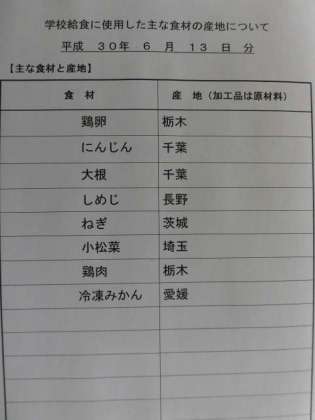 学校給食に使用した主な食材の産地について
平成 30年 6 月 13 日 分
【主な食材と産地】
食 材 産 地（加工品は原材料）
鶏卵 栃木
にんじん 千葉
大根 千葉
しめじ 長野
ねぎ 茨城
小松菜 埼玉
鶏肉 栃木
冷凍みかん 愛媛